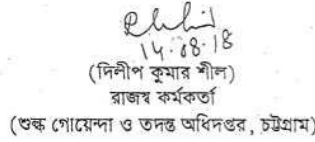 14.08.18
(দিলীপ কুমার শীল)
রাজস্ব কর্মকর্তা
(শুল্ক গোয়েন্দা ও তদন্ত অধিদপ্তর, চট্টগ্রাম)